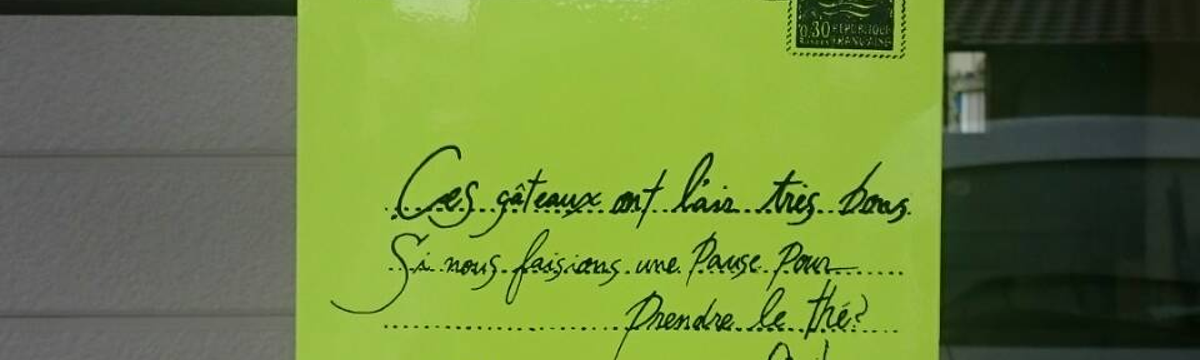 0,30 REPUBLIQUE
FRANCAISE
Ces gâteaux ont l'air très bons.
Si nous faisions une Pause Pour
Prendre le thé?